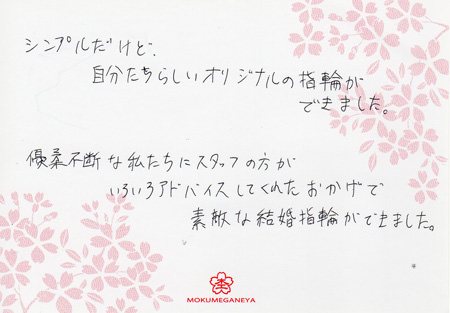 シンプルだけど、
自分たちらしいオリジナルの指輪が
できました。
優柔不断な私たちにスタッフの方が
いろいろアドバイスしてくれたおかげで
素敵な結婚指輪ができました。
MOKUMEGANEYA